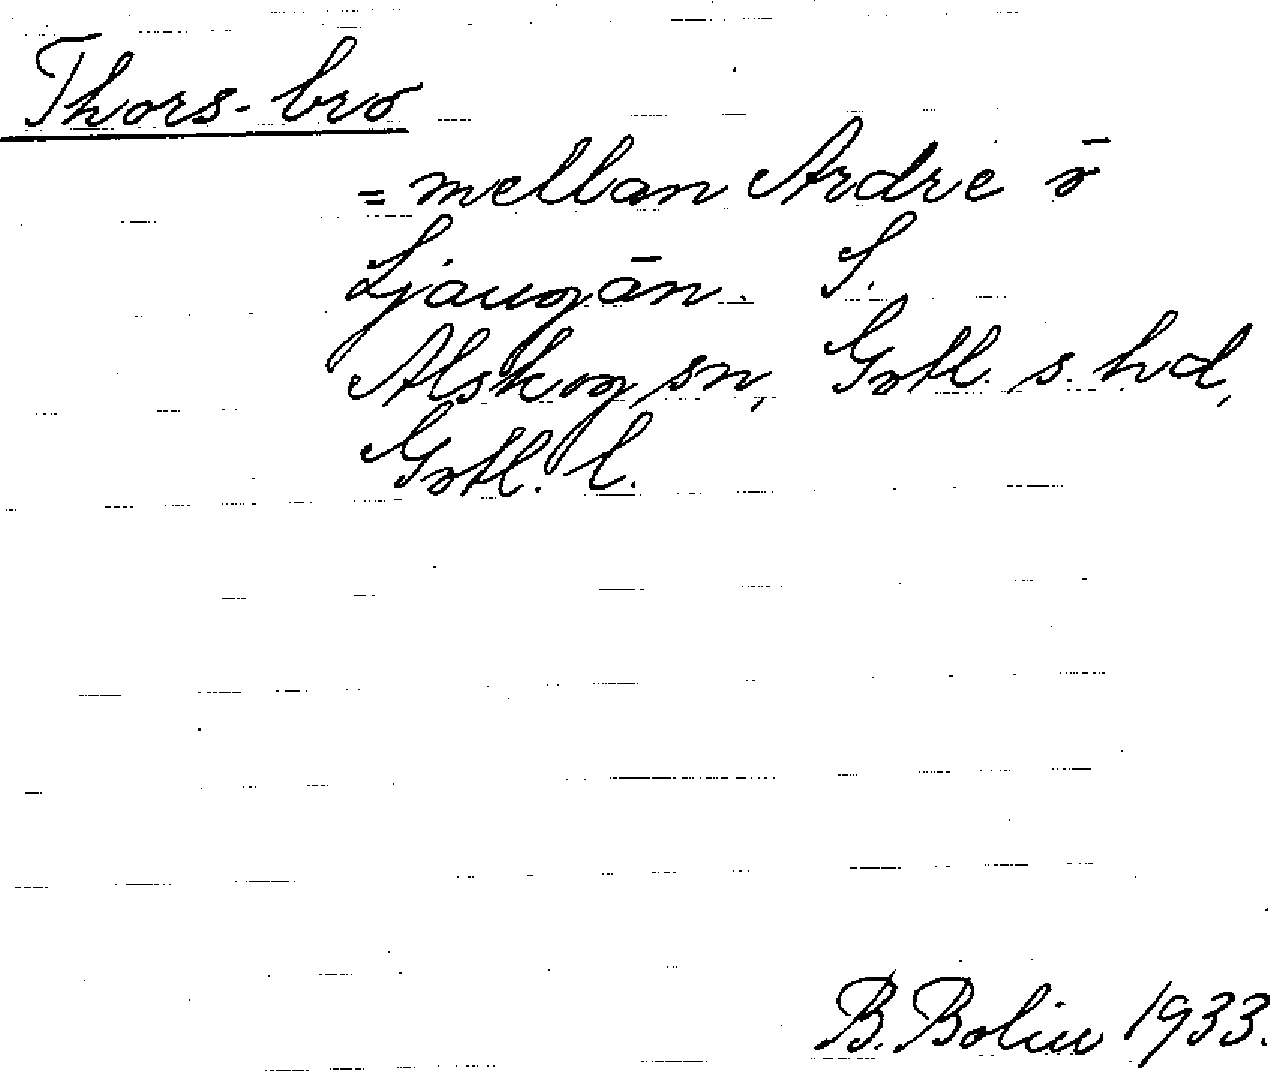 Thors-bro
= mellan Ardre ō
Ljaugān. S.
Alskog sn, Gotl. s. hd,
Gotl. l.
B. Bolin 1933.